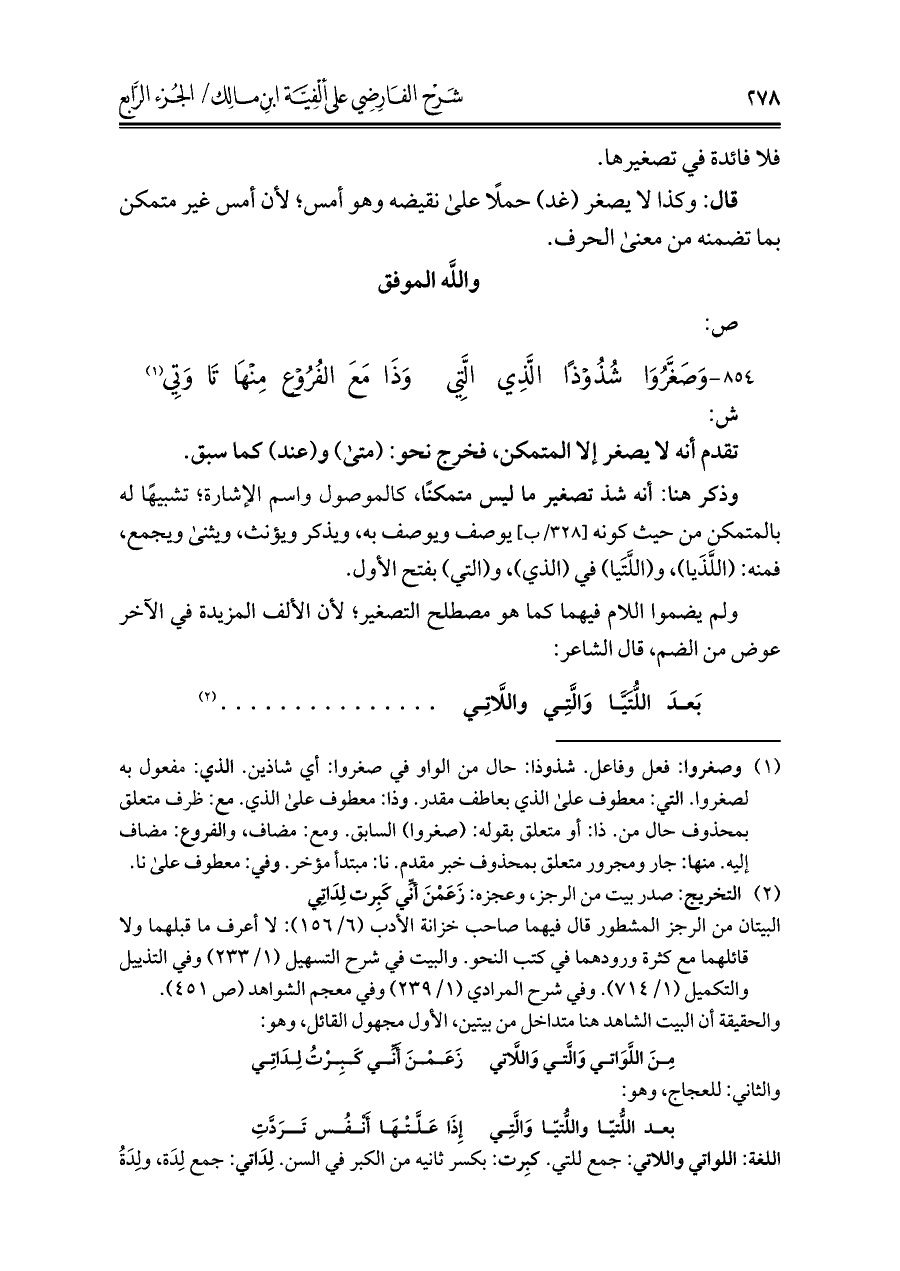 ٢٧٨
شَرْح الفَارِضِي عَلى أَلْفِيَّة ابنِ مَالِك / الجُزء الرَّابع
فلا فائدة في تصغيرها.
قال: وكذا لا يصغر (غد) حملًا علىٰ نقيضه وهو أمس؛ لأن أمس غير متمكن
بما تضمنه من معنىٰ الحرف.
واللَّه الموفق
ص:
٨٥٤-وَصَغَّرُوَا شُذُوْذًا الَّذِي الَّتِي وَذَا مَعَ الفُرُوْعِ مِنْهَا تَا وَتِي(١)
ش:
تقدم أنه لا يصغر إلا المتمكن، فخرج نحو: (متىٰ) و(عند) كما سبق.
وذكر هنا: أنه شذ تصغير ما ليس متمكنًا، كالموصول واسم الإشارة؛ تشبيهًا له
بالمتمكن من حيث كونه [٣٢٨/ ب] يوصف ويوصف به، ويذكر ويؤنث، ويثنىٰ ويجمع،
فمنه: (اللَّذَيا)، و(اللَّتَيا) في (الذي)، و(التي) بفتح الأول.
ولم يضموا اللام فيهما كما هو مصطلح التصغير؛ لأن الألف المزيدة في الآخر
عوض من الضم، قال الشاعر:
بَعـدَ اللُّتَيَّـا وَالَّتِـي واللَّاتِـي . . . . . . . . . . . . . . . (٢)
(١) وصغروا: فعل وفاعل. شذوذا: حال من الواو في صغروا: أي شاذين. الذي: مفعول به
لصغروا. التي: معطوف علىٰ الذي بعاطف مقدر. وذا: معطوف علىٰ الذي. مع: ظرف متعلق
بمحذوف حال من. ذا: أو متعلق بقوله: (صغروا) السابق. ومع: مضاف، والفروع: مضاف
إليه. منها: جار ومجرور متعلق بمحذوف خبر مقدم. نا: مبتدأ مؤخر. وفي: معطوف علىٰ نا.
(٢) التخريج: صدر بيت من الرجز، وعجزه: زَعَمْنَ أنِّي كَبِرت لِدَاتِي
البيتان من الرجز المشطور قال فيهما صاحب خزانة الأدب (٦/ ١٥٦): لا أعرف ما قبلهما ولا
قائلهما مع كثرة ورودهما في كتب النحو. والبيت في شرح التسهيل (١/ ٢٣٣) وفي التذييل
والتكميل (١/ ٧١٤). وفي شرح المرادي (١/ ٢٣٩) وفي معجم الشواهد (ص ٤٥١).
والحقيقة أن البيت الشاهد هنا متداخل من بيتين، الأول مجهول القائل، وهو:
مِـنَ اللَّوَاتـي وَالَّتـي وَاللَّاتي زَعَـمْـنَ أَنِّـي كَـبِـرْتُ لِـدَاتِـي
والثاني: للعجاج، وهو:
بعـد اللُّتيّـا واللُّتيّـا وَالَّتِـي إِذَا عَـلَّـتْـهَـا أَنْـفُـس تَـرَدَّتِ
اللغة: اللواتي واللاتي: جمع للتي. كبِرت: بكسر ثانيه من الكبر في السن. لِدَاتي: جمع لِدَة، ولِدَةُ